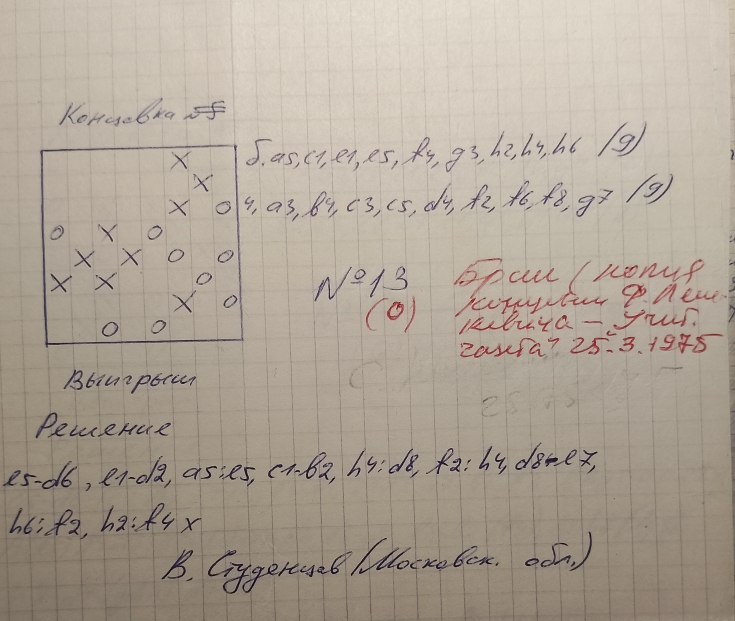 Концовка №5
б. a5, c1, e1, e5, f4, g3, h2, h4, h6 (9)
ч, a3, b4, c3, c5, d4, f2, f6, f8, g7 (9)
№13
(0)
Брак (копия
концовки Ф. Леш-
кевича — „Учит.
газета" 25.3.1975
Выигрыш
Решение
e5-d6, e1-d2, a5:e5, c1-b2, h4:d8, f2:h4, d8-e7,
h6:f2, h2:f4 x
В. Студенцов (Московск. обл.)